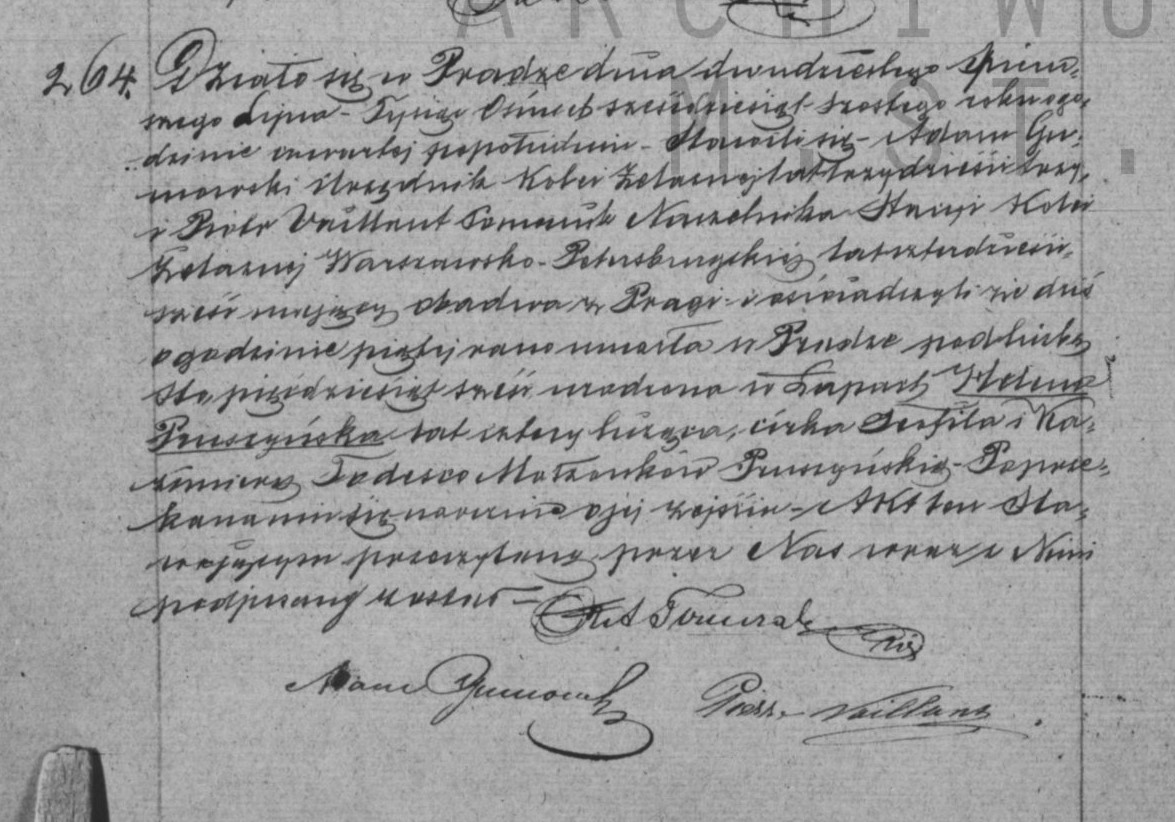 ARCHIWU
M.ST.
264. Działo się w Pradze dnia dwudziestego pierw-
szego Lipca - Tysiąc Ośmset sześćdziesiąt szóstego roku o go-
dzinie czwartej popołudniu - Stawili się - Adam Gu-
mowski Urzędnik Kolei Żelaznej lat trzydzieści trzy,
i Piotr Vaillant Pomocnik Naczelnika Stacyi Kolei
Żelaznej Warszawsko-Petersburgskiej lat czterdzieści
sześć mający obadwa z Pragi i oświadczyli że dziś
o godzinie piątej rano umarła w Pradze pod liczbą
Sto pięćdziesiąt sześć urodzona w Łapach Helena
Pruszyńska lat cztery licząca, córka Teofila i Ka-
zimiery Tedesco Małżonków Pruszyńskich - Po prze-
konaniu się naocznie o jej zejściu - Akt ten Sta-
wającym przeczytany przez Nas wraz z Nimi
podpisany został -
Adam Gumowski Vaillant